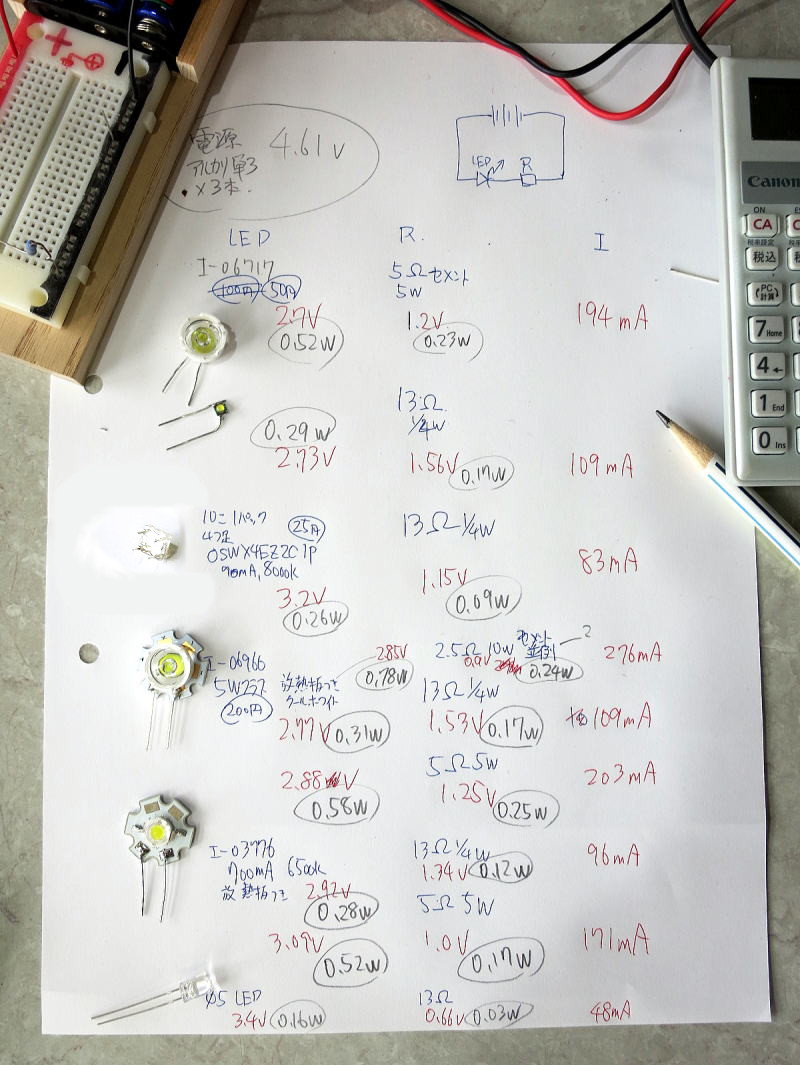 電源 4.61V
アルカリ単3
×3本.
LED R
LED R. I
I-06717
100円 50円
5Ω セメント
5W
2.7V 1.2V 194mA
0.52W 0.23W
13Ω
1/4W
0.29W
2.73V 1.56V 0.17W 109mA
10こ 1パック 25円
4つ足
OSWX4EZ2C1P
90mA, 8000K
13Ω 1/4W
83mA
3.2V 1.15V
0.26W 0.09W
I-06966
5Wクラス
200円
放熱板つき
クールホワイト
2.85V
0.78W
2.5Ω 10W セメント 並列 2
0.9V 0.24W 276mA
13Ω 1/4W
2.77V 0.31W 1.53V 0.17W 109mA
5Ω 5W
2.88V 1.25V 203mA
0.58W 0.25W
I-03776
700mA 6500K
放熱板つき
13Ω 1/4W 96mA
2.92V 1.34V 0.12W
0.28W
5Ω 5W
3.09V 1.0V 171mA
0.52W 0.17W
φ5 LED 13Ω
3.4V 0.16W 0.66V 0.03W 48mA
Canon
ON
CA
税率設定
税込
PC
計算
7 Home
4 ←
1 End
0 Ins